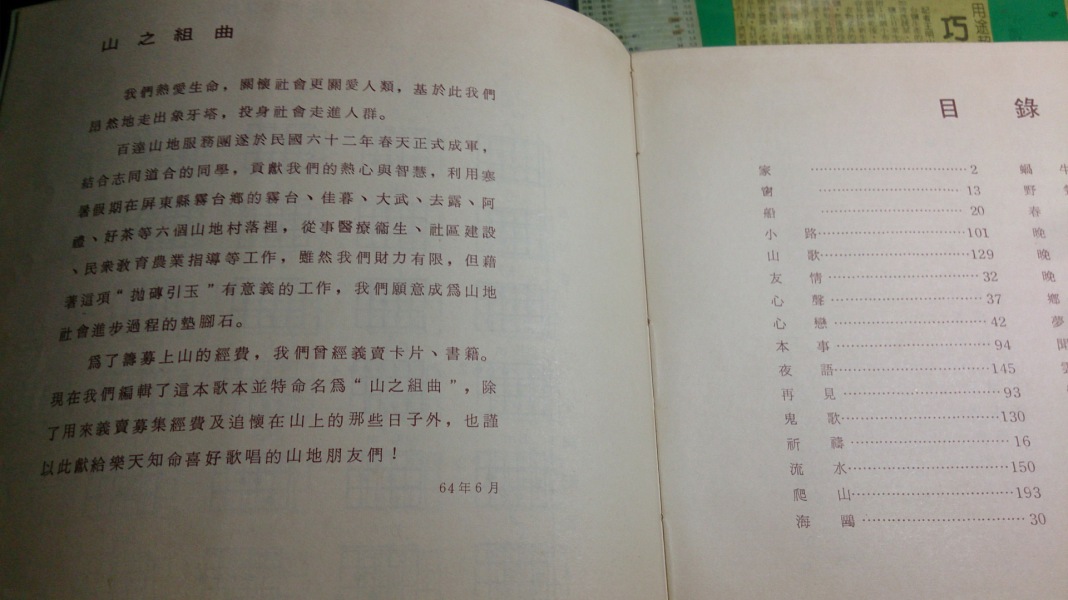 山之組曲
我們熱愛生命，關懷社會更關愛人類，基於此我們
昂然地走出象牙塔，投身社會走進人群。
百達山地服務團遂於民國六十二年春天正式成軍，
結合志同道合的同學，貢獻我們的熱心與智慧，利用寒
暑假期在屏東縣霧台鄉的霧台、佳暮、大武、去露、阿
禮、好茶等六個山地村落裡，從事醫療衞生、社區建設
、民衆教育農業指導等工作，雖然我們財力有限，但藉
著這項“拋磚引玉”有意義的工作，我們願意成爲山地
社會進步過程的墊腳石。
爲了籌募上山的經費，我們曾經義賣卡片、書籍。
現在我們編輯了這本歌本並特命名爲“山之組曲”，除
了用來義賣募集經費及追懷在山上的那些日子外，也謹
以此獻給樂天知命喜好歌唱的山地朋友們！
64年6月
目錄
家 2
窗 13
船 20
小路 101
山歌 129
友情 32
心聲 37
心戀 42
本事 94
夜語 145
再見 93
鬼歌 130
祈禱 16
流水 150
爬山 193
海鷗 30
蝸
野
春
晚
晚
晚
鄉
夢
用途
巧